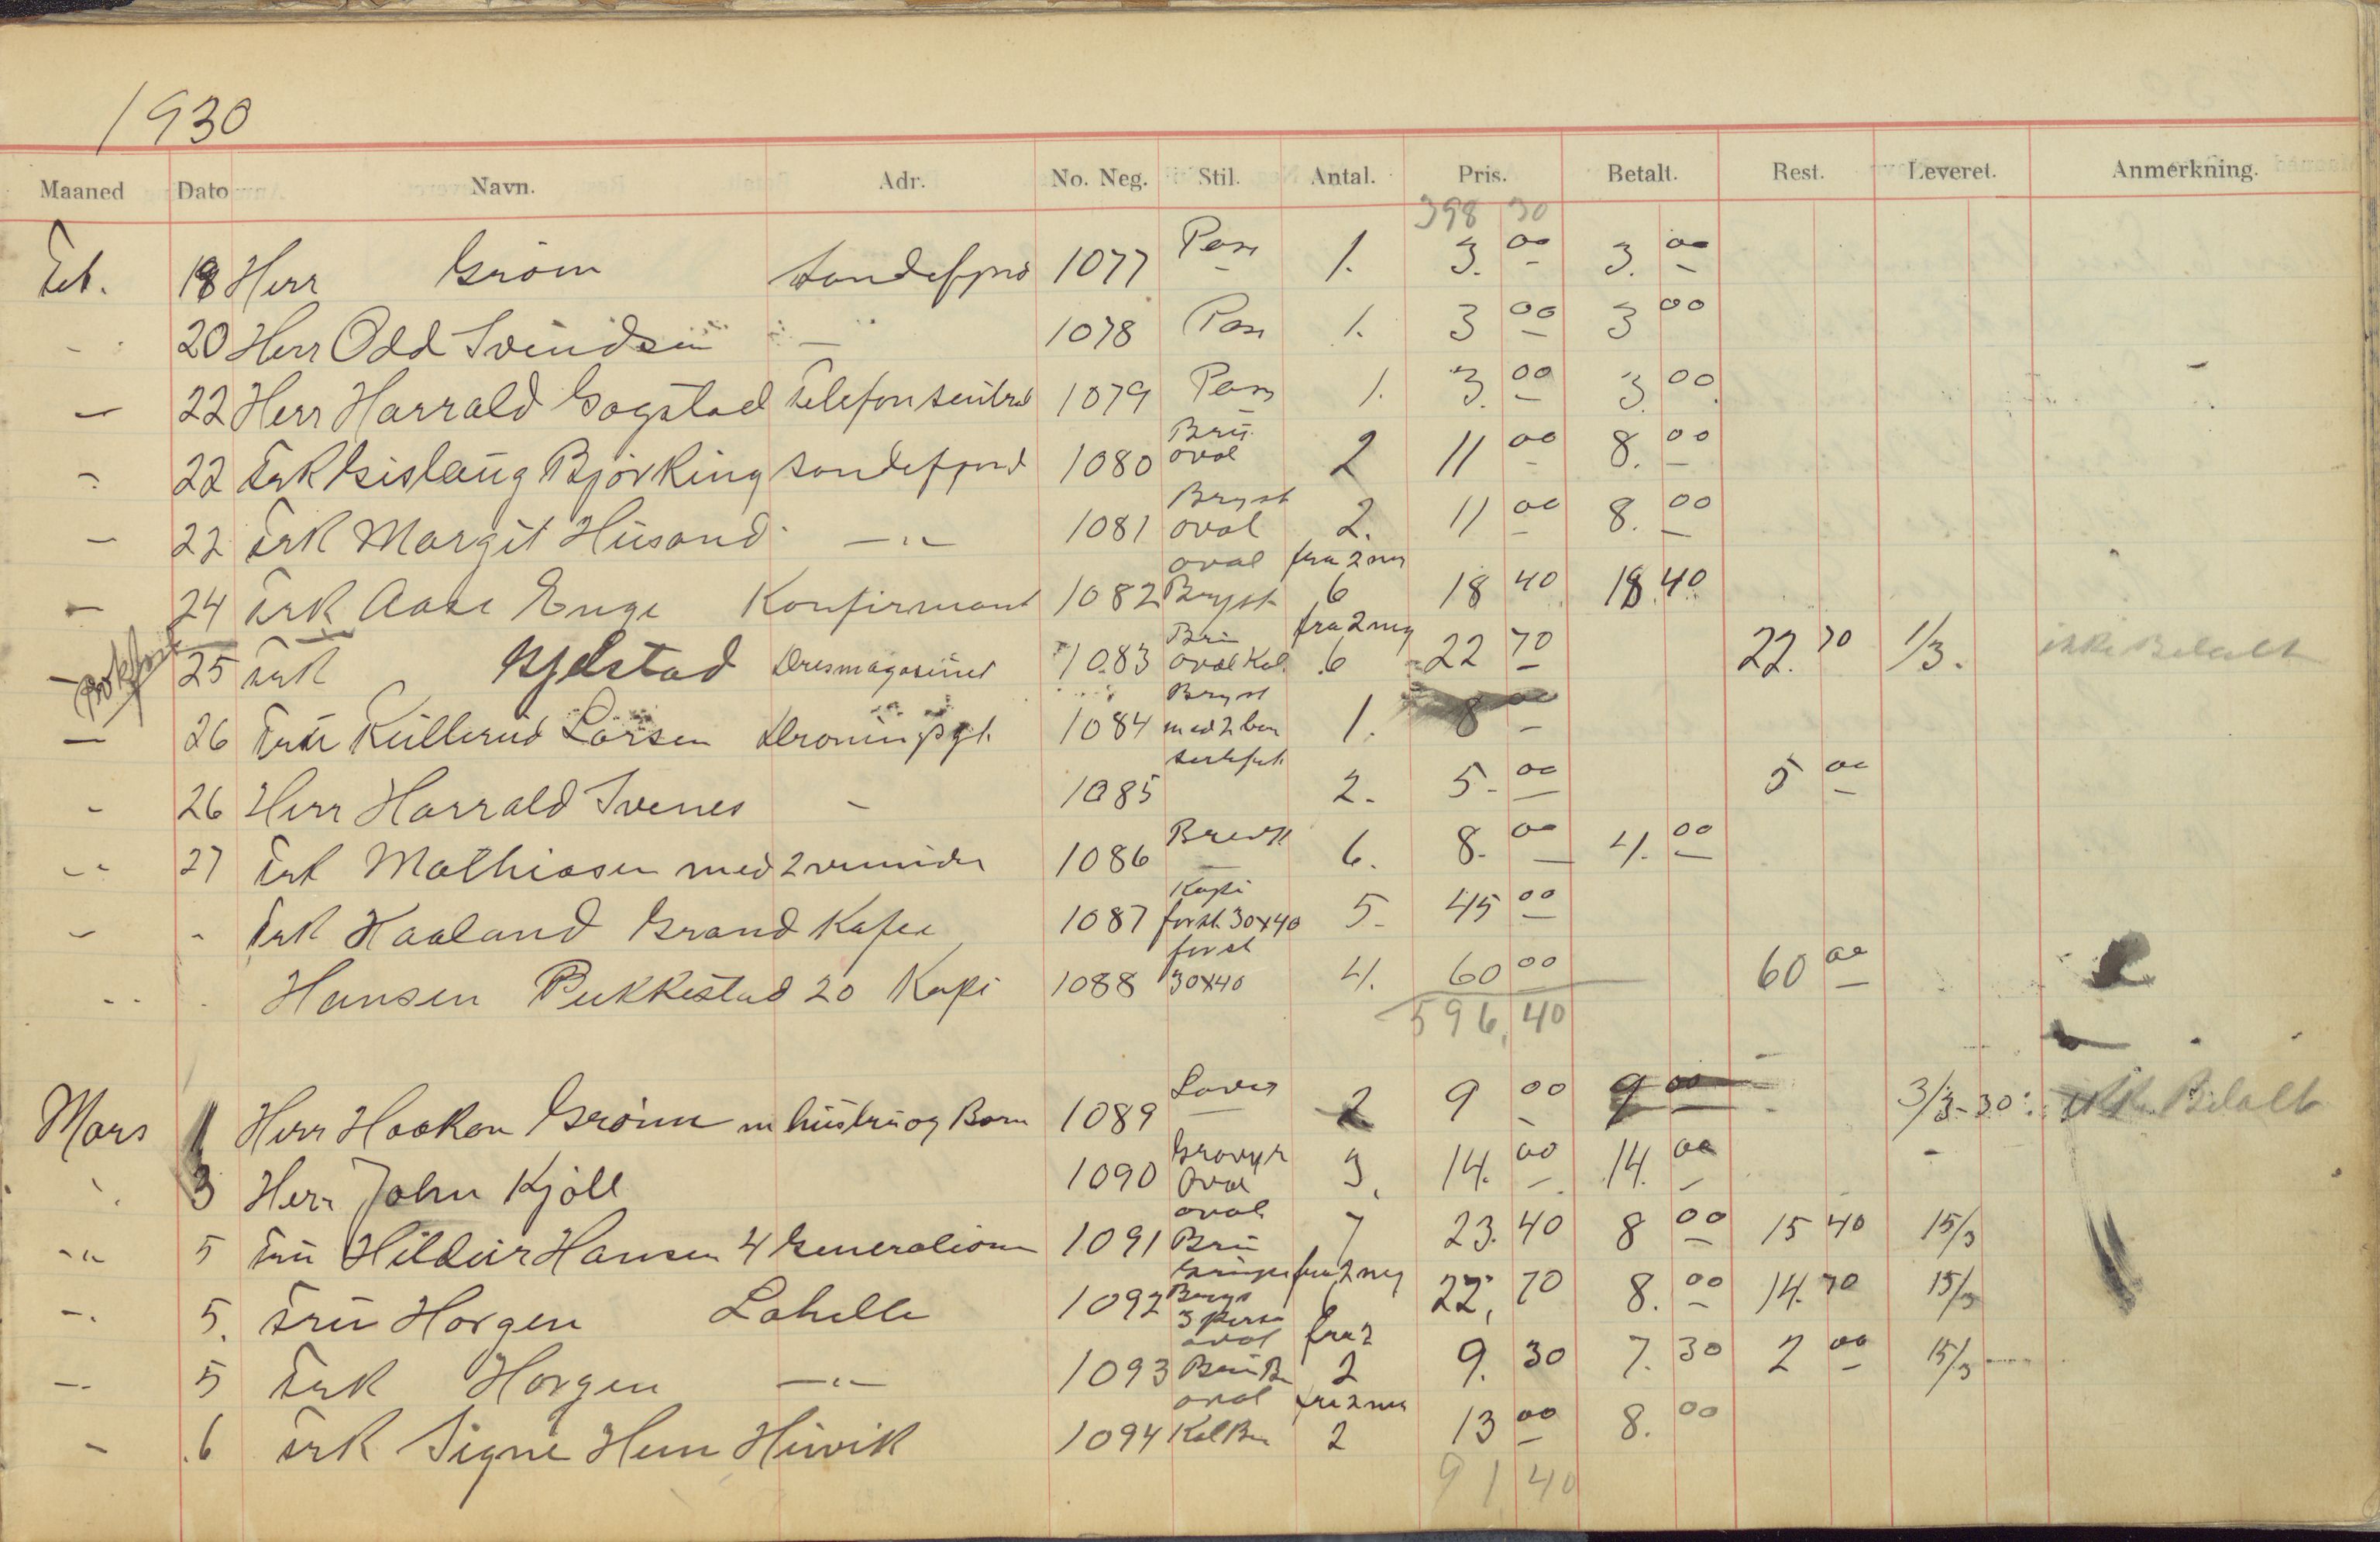 1930
Maaned Dato Navn. Adr. No. Neg. Stil. Antal. Pris. Betalt. Rest. Leveret. Anmerkning.
398 30
Feb. 18 Herr Grøm Sandefjord 1077 Pass 1. 3. 00 3. 00
20 Herr Odd Svendsen — 1078 Pass 1. 3 00 3 00
— 22 Herr Harrald Gogstad Telefonsentral 1079 Pass 1. 3. 00 3. 00
22 Frk Gislaug Bjørking Sandefjord 1080 Brü. oval 2 11 00 8. 00
— 22 Frk Margit Hüsand —"— 1081 Bryst oval 2. 11 00 8. 00
— 24 Frk Aase Enge Konfirmant 1082 oval Bryst fra 2 neg 6 18 40 18 40
— Bokført 25 Frk Kjelstad Dresmagasinet 1083 Brü oval Kol. fra 2 neg 6 22 70 22. 70 1/3. ikke Betalt
— 26 Frü Küllerud Larsen Droningsgt. 1084 Bryst med 2 ben 1. 8 00
- 26 Herr Harrald Svenes - 1085 2. 5. 00 5 00
-"- 27 Frk Mathiasen med 2 veninder 1086 6. 8. 00 4. 00
- - Frk Haaland Grand Kafee 1087 Kopi forst. 30x40 5. 45 00
Hansen Pukkestad 20 Kopi 1088 forst 30x40 4. 60 00 60 00
596,40
Mars 1 Herr Haakon Grønn m hüstrü og Barn 1089 2 9 00 9 00 3/3-30 ikke Betalt
3 Herr John Kjøll 1090 Gravyr Oval 3. 14. 00 14. 00
-"- 5 Frü Hildür Hansen 4 Generationer 1091 oval Brü 7 23. 40 8 00 15 40 15/3
-"- 5. Frü Horgen Lahelle 1092 3 Pers fra 2 neg 6 22, 70 8. 00 14. 70 15/3
— 5 Frk Horgen —"— 1093 oval Brü fra 2 2 9. 30 7. 30 2 00 15/3
- 6 Frk Signe Hem Hüvik 1094 oval Kol Brü fra 2 neg 2 13 00 8. 00
91 40